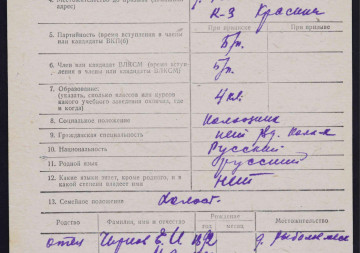 к-з Красина
адрес)
При приписке При призыве
5. Партийность (время вступления в члены или кандидаты ВКП(б) Б/п.
6. Член или кандидат ВЛКСМ (время вступления в члены или кандидаты ВЛКСМ) Б/п.
7. Образование:
(указать, сколько классов или курсов какого учебного заведения окончил, где и когда) 4 кл.
8. Социальное положение Колхозник
9. Гражданская специальность нет
10. Национальность Русский
11. Родной язык русский
12. Какие языки знает, кроме родного, и в какой степени владеет ими нет
13. Семейное положение Холост.
Родство Фамилия, имя и отчество Рождение Местожительство
год месяц
отец Е. И. д.